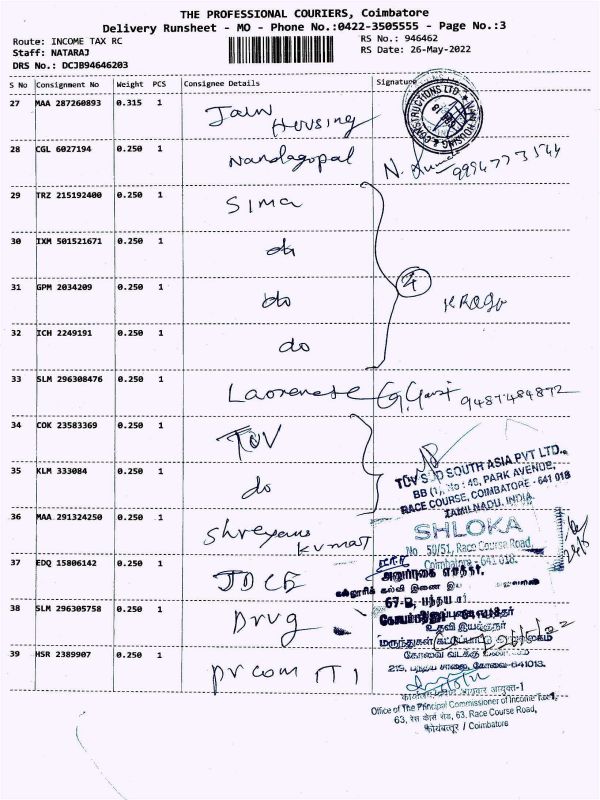 THE PROFESSIONAL COURIERS, Coimbatore
Delivery Runsheet - MO - Phone No.:0422-3505555 - Page No.:3
Route: INCOME TAX RC
RS No.: 946462
Staff: NATARAJ
RS Date: 26-May-2022
DRS No.: DCJB94646203
S No Consignment No Weight PCS Consignee Details Signature
27 MAA 287260893 0.315 1 Jain Housing
HOUSING & CONSTRUCTIONS LTD.
28 CGL 6027194 0.250 1 Nandagopal N. 9994773544
29 TRZ 215192400 0.250 1 Sima
30 IXM 501521671 0.250 1 do
31 GPM 2034209 0.250 1 do 4
32 ICH 2249191 0.250 1 do
33 SLM 296308476 0.250 1 9487484872
34 COK 23583369 0.250 1 TUV
35 KLM 333084 0.250 1 do
TÜV SÜD SOUTH ASIA PVT LTD.,
BB (1), No : 48, PARK AVENUE,
RACE COURSE, COIMBATORE - 641 018
TAMILNADU, INDIA.
36 MAA 291324250 0.250 1 Shreyans Kumar
SHLOKA
No. 50/51, Race Course Road,
Coimbatore - 641 018.
37 EDQ 15806142 0.250 1 JDCE
38 SLM 296305758 0.250 1 Drug
உதவி இயக்குநர்
கோவை வடக்கு
219, பந்தய சாலை, கோவை-641018.
39 HSR 2389907 0.250 1 prcom IT 1
Office of The Principal Commissioner of Income Tax-1,
63, रेस कोर्स रोड, 63, Race Course Road,
कोयंबत्तूर / Coimbatore